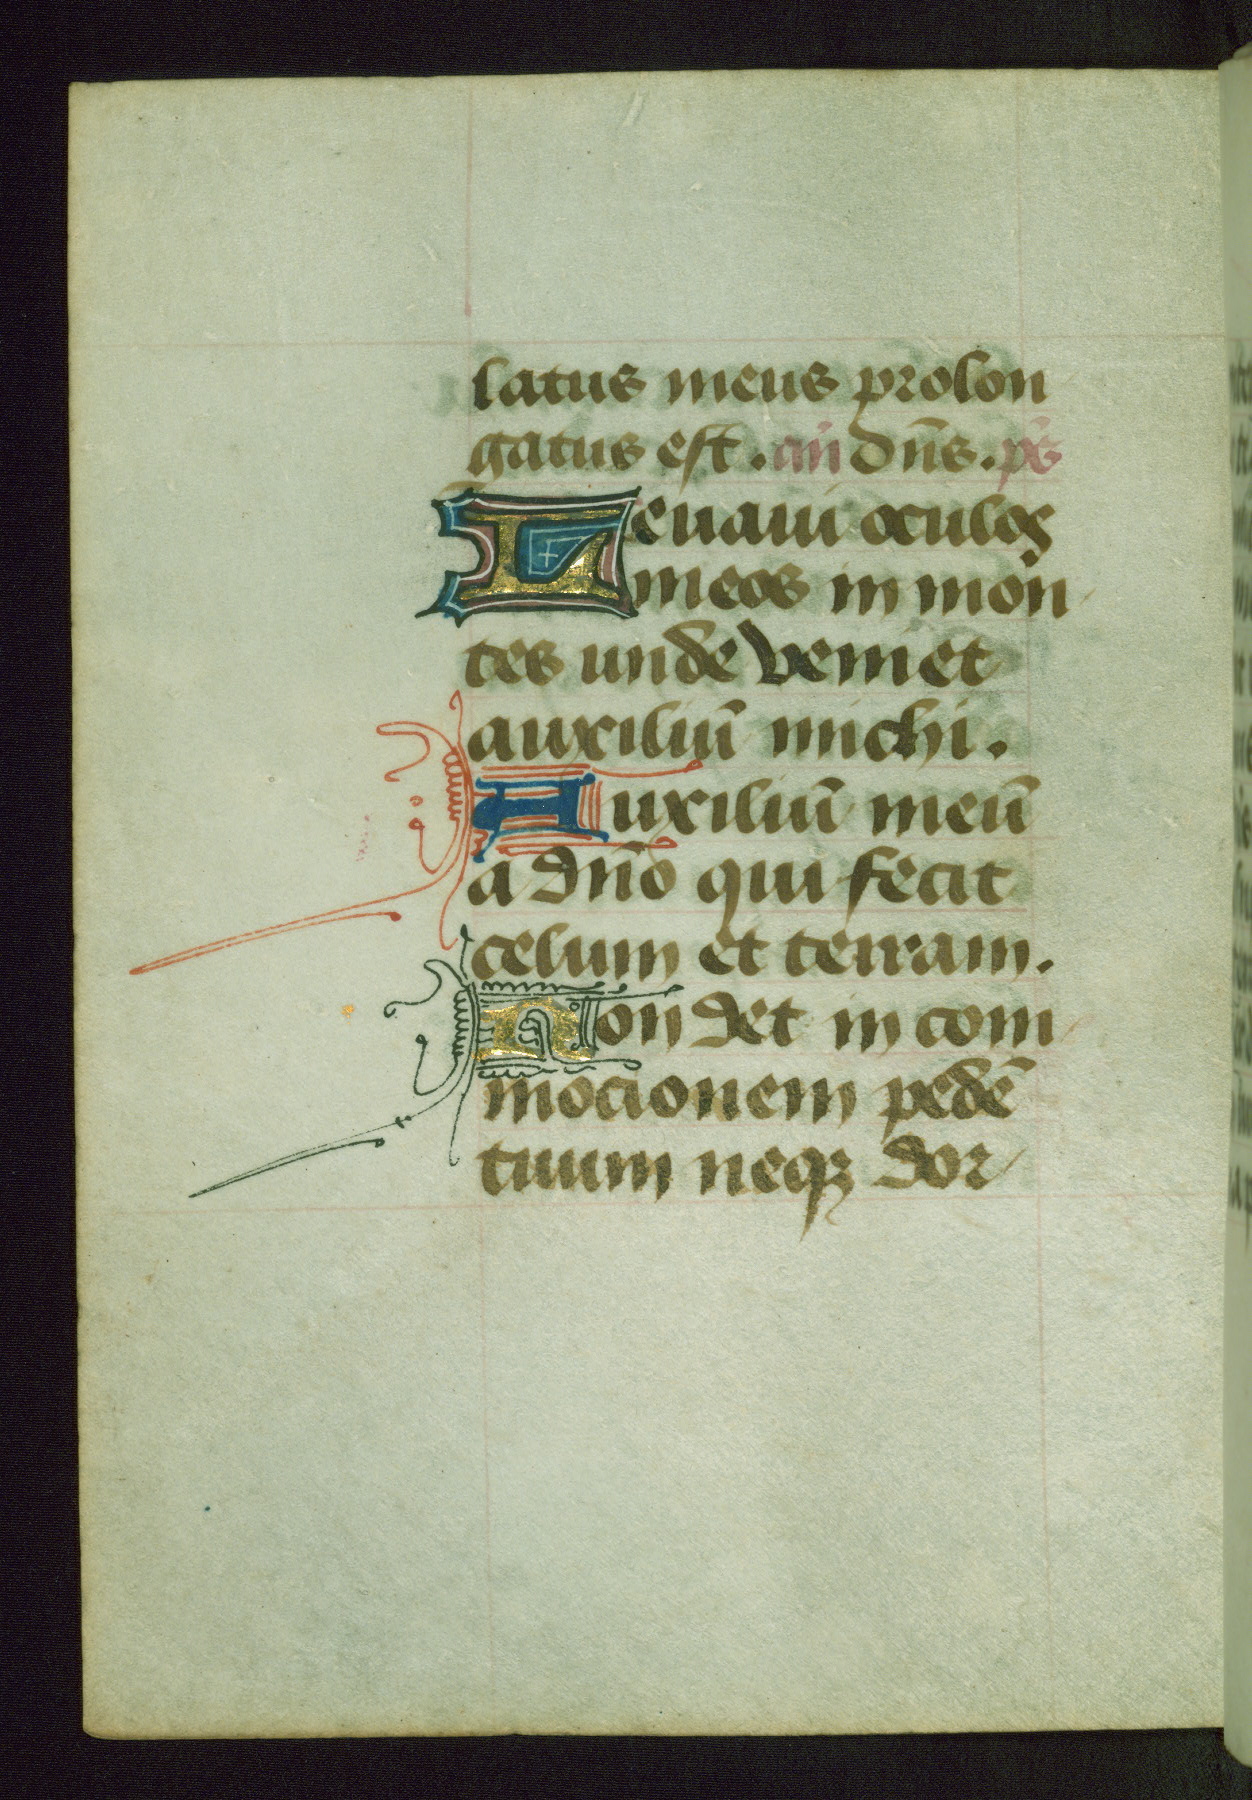 latus meus prolon
gatus est. añ dñs. ps̄
Leuaui oculos
meos in mon
tes unde veniet
auxiliū michi.
Auxiliū meū
a dño qui fecit
celum et terram.
Non det in com
mocionem pedē
tuum neqꝫ dor